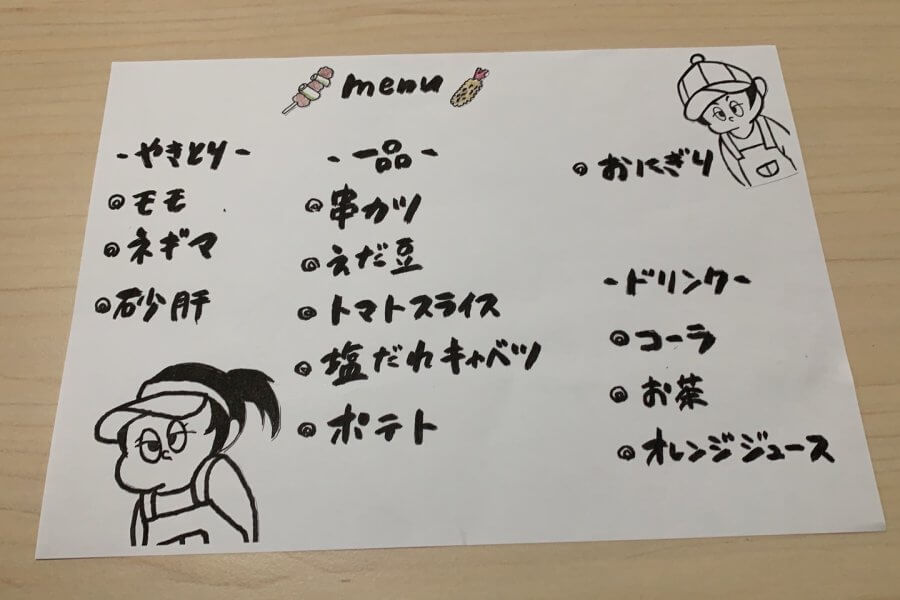 menu
-やきとり-
◎モモ
◎ネギマ
◎砂肝
-一品-
◎串カツ
◎えだ豆
◎トマトスライス
◎塩だれキャベツ
◎ポテト
◎おにぎり
-ドリンク-
◎コーラ
◎お茶
◎オレンジジュース